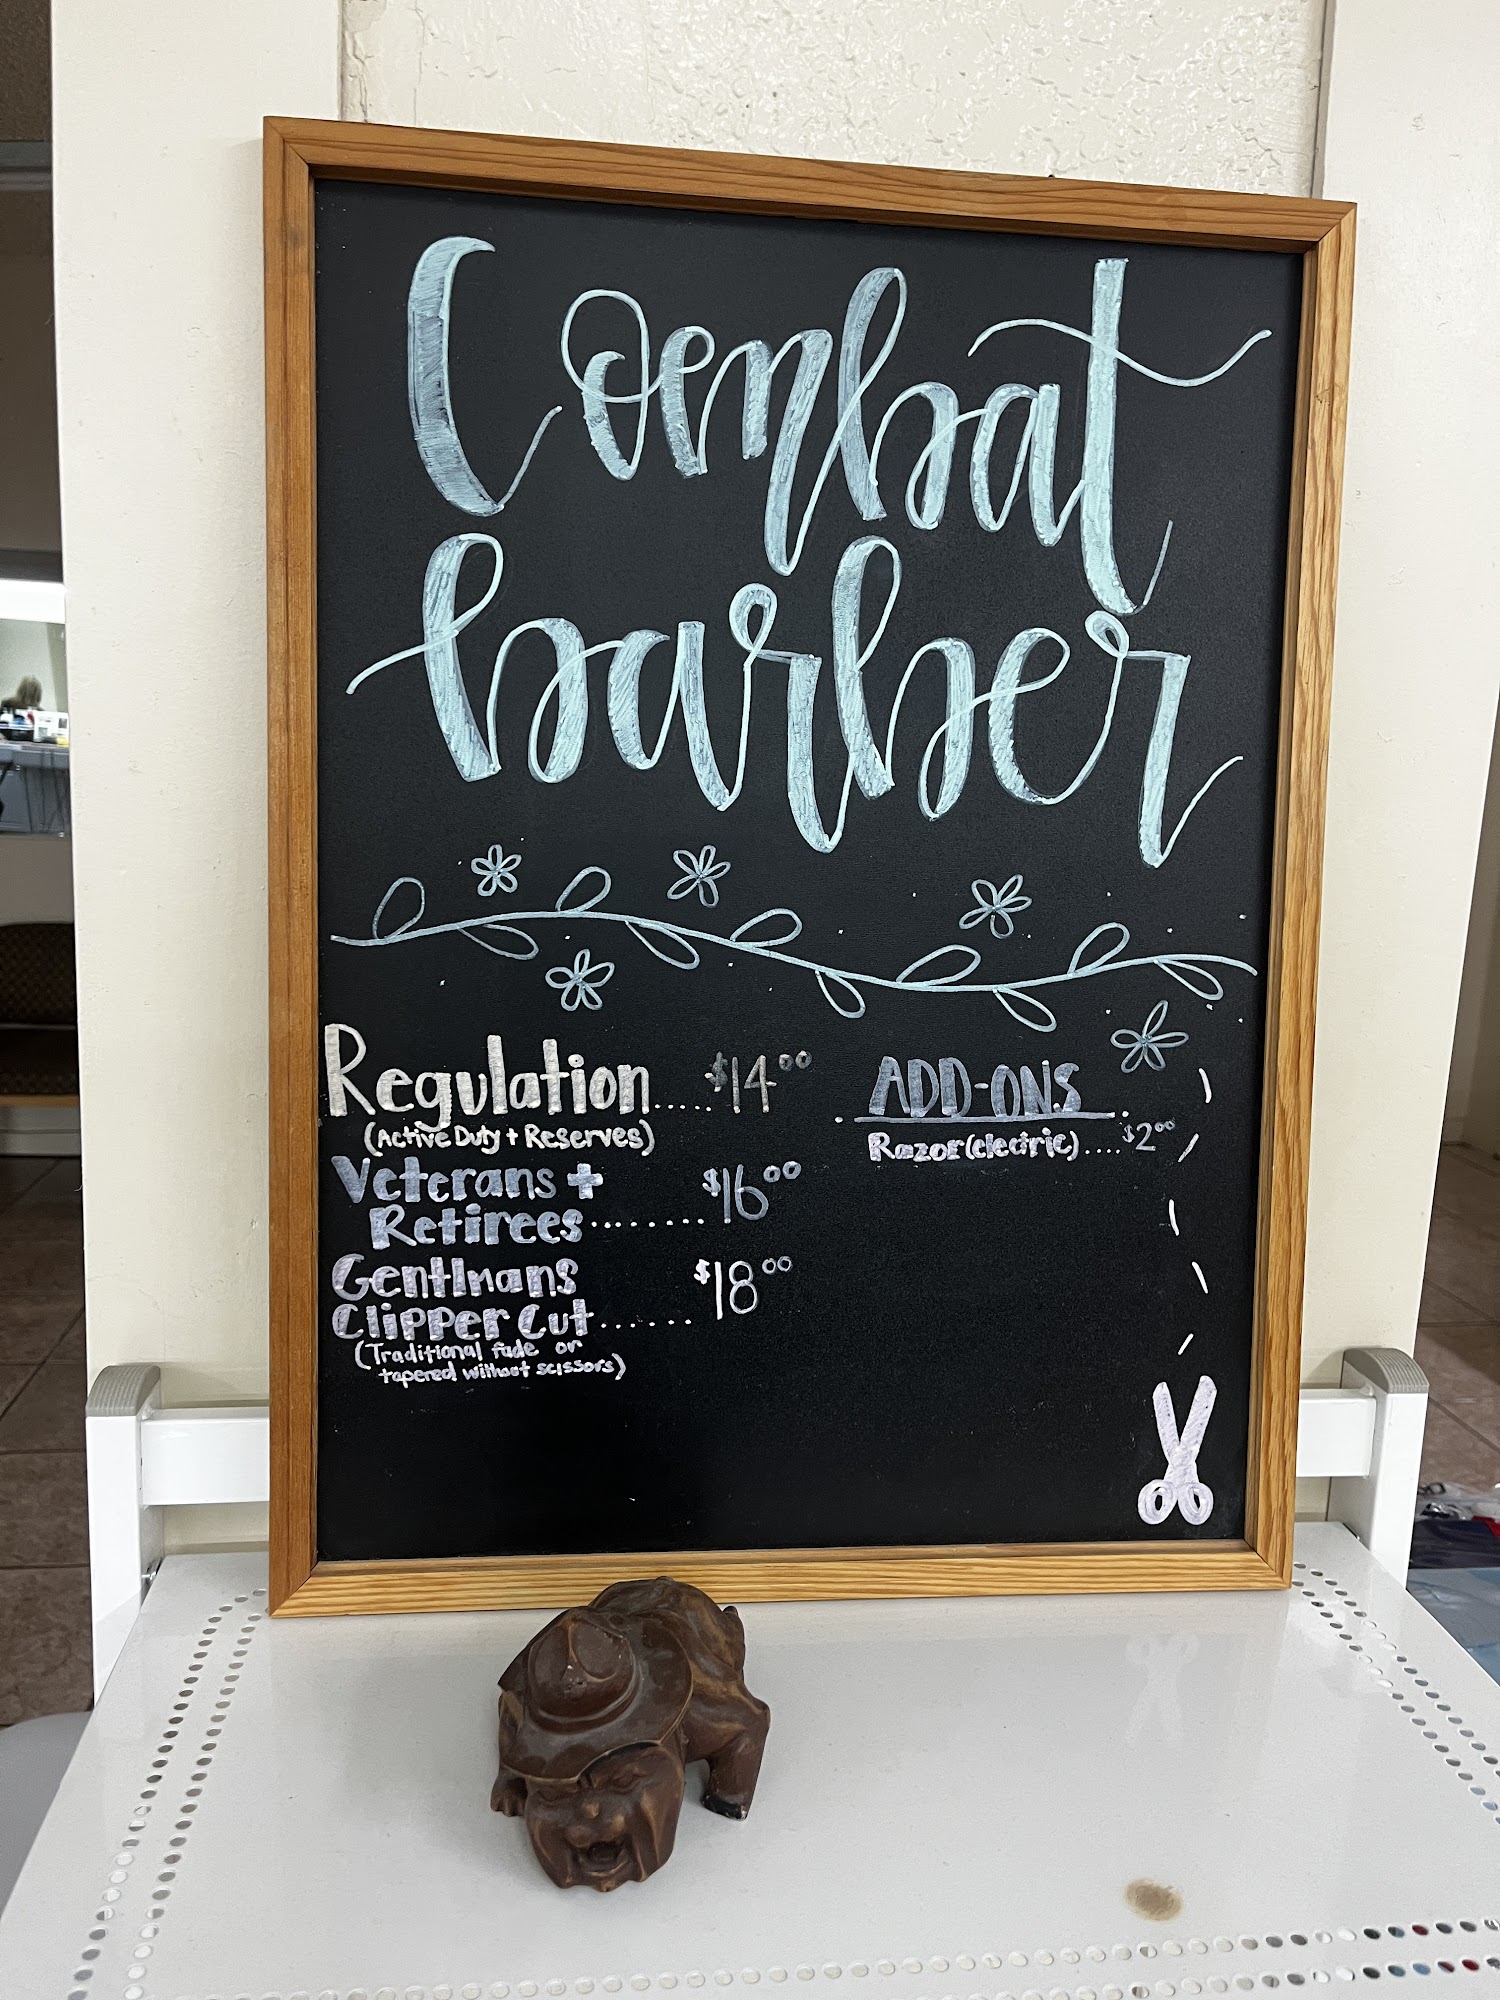 Combat
barber
Regulation ..... $14.00
(Active Duty + Reserves)
Veterans +
Retirees ........ $16.00
Gentlmans
Clipper Cut ....... $18.00
(Traditional fade or
tapered without scissors)
ADD-ONS
Razor (electric) .... $2.00